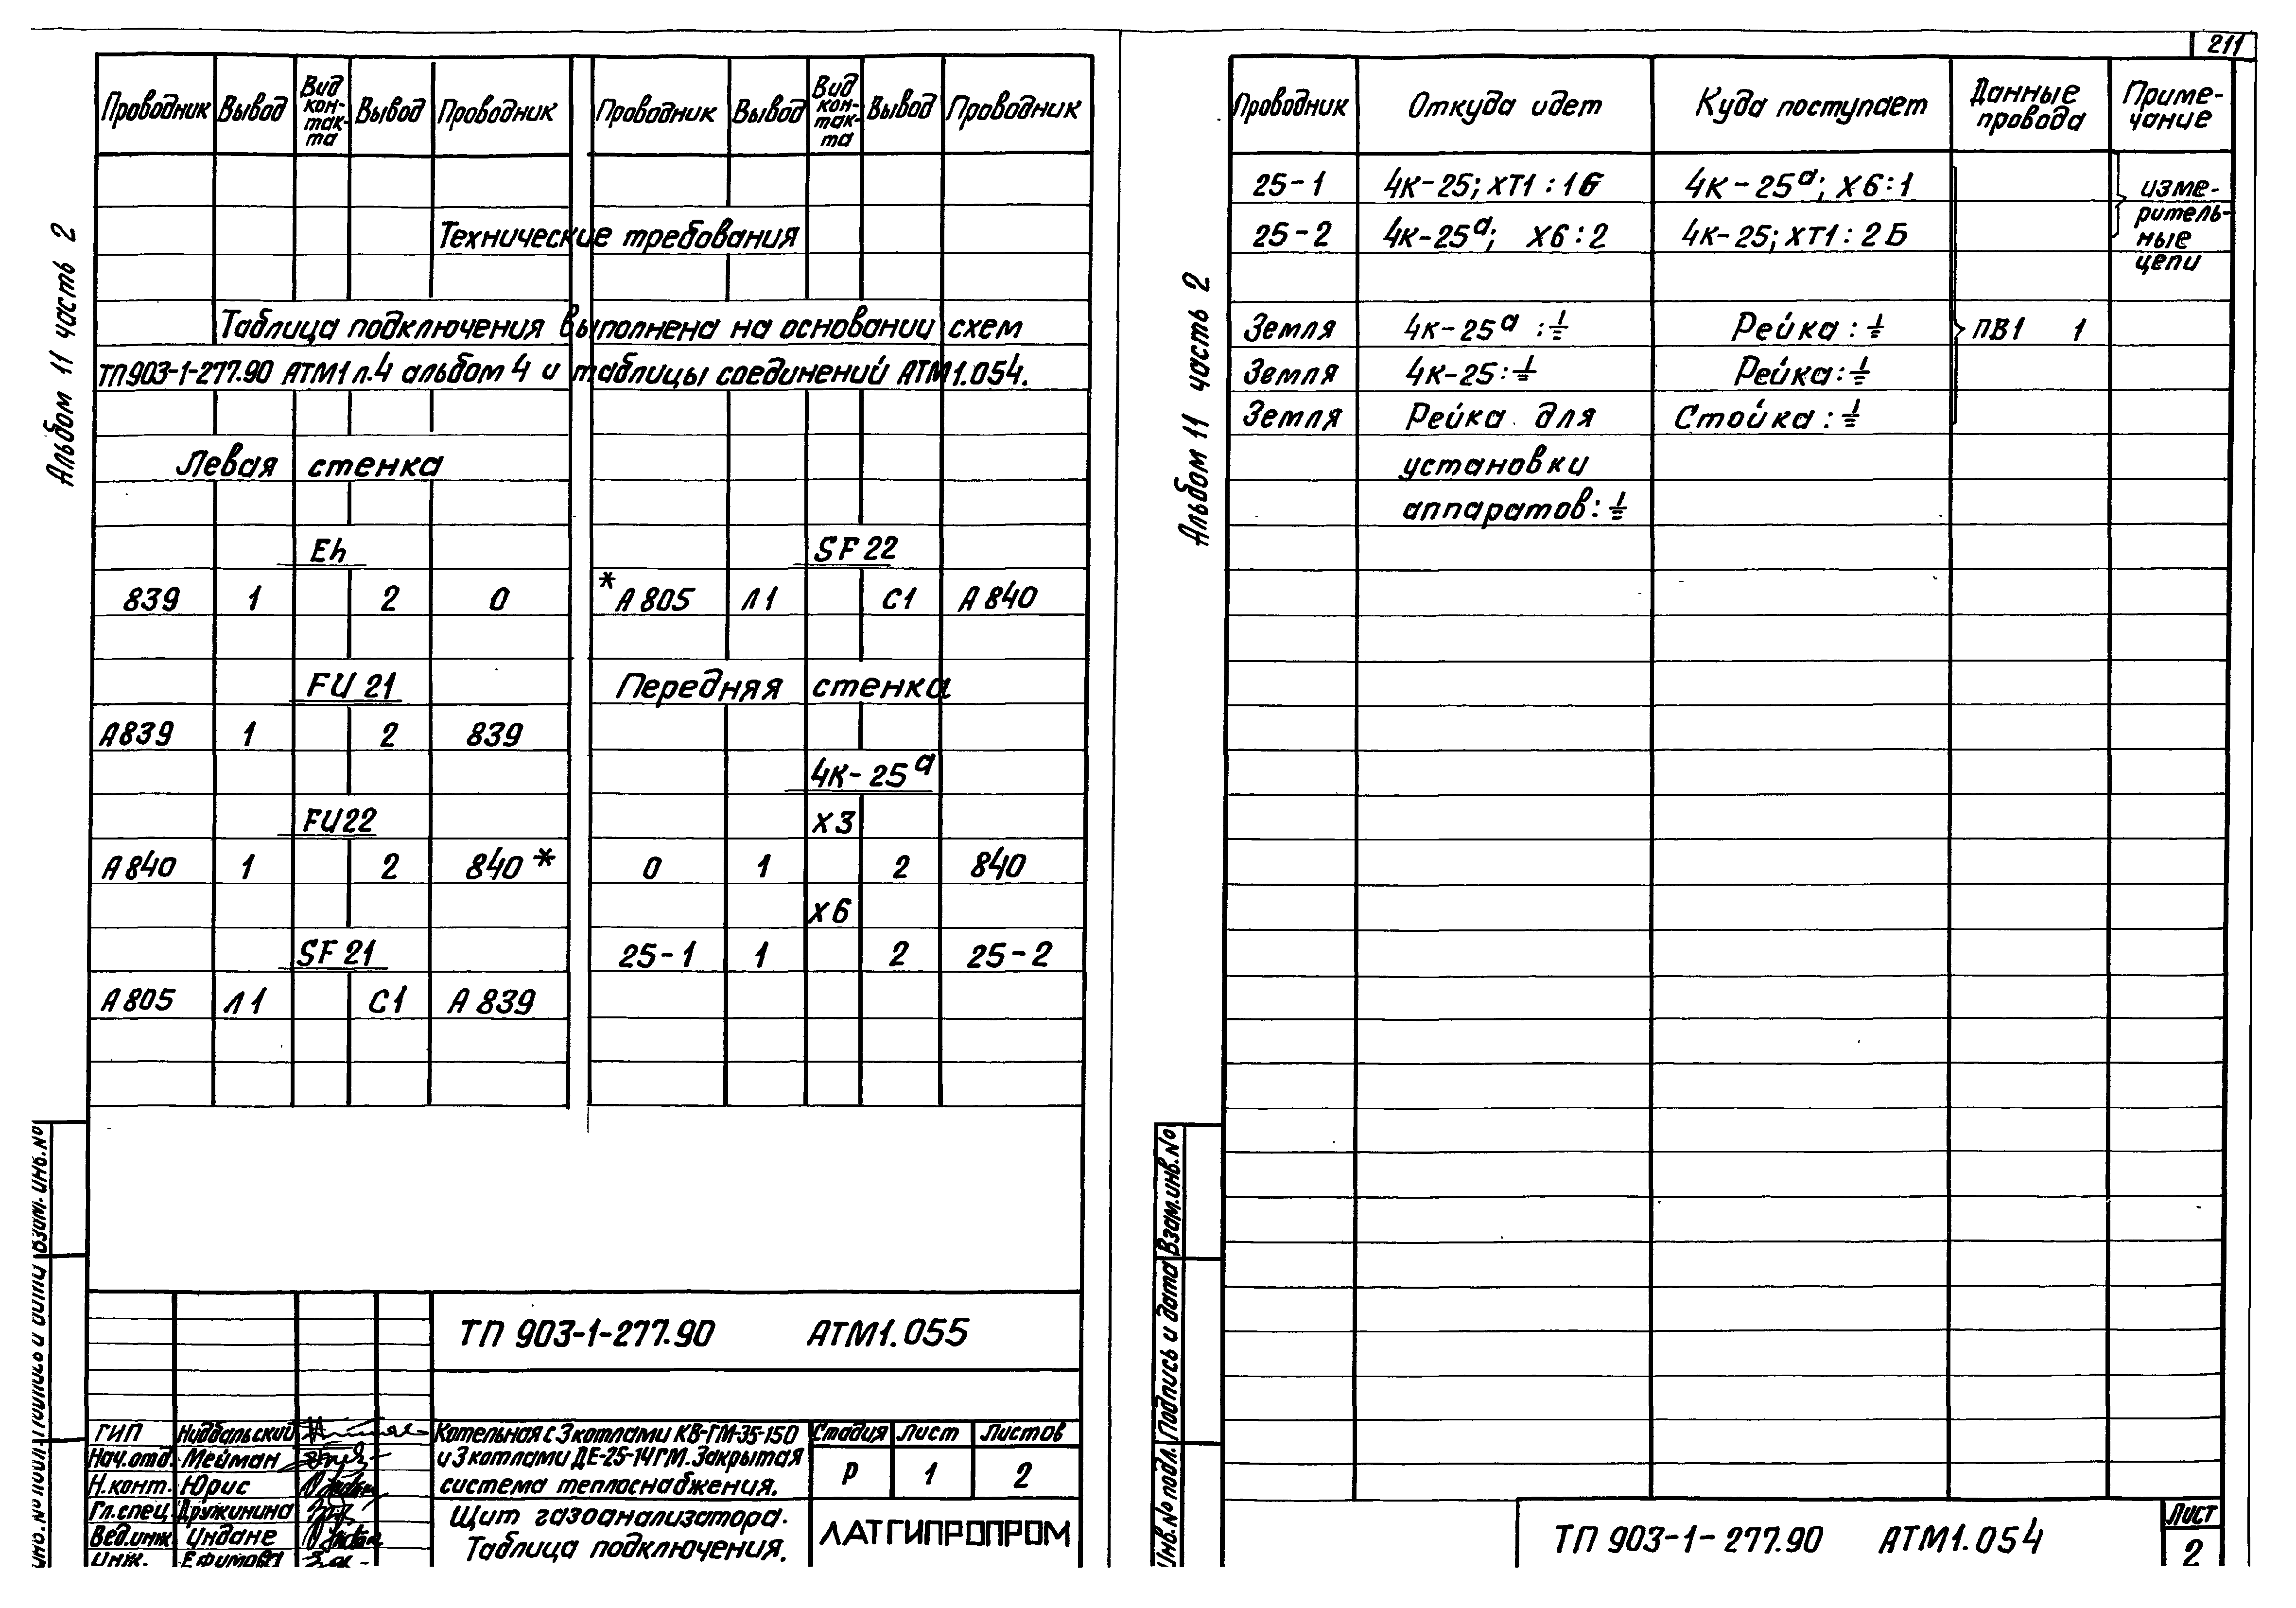 211
Альбом 11 часть 2
Проводник Вывод Вид кон-так-та Вывод Проводник Проводник Вывод Вид кон-так-та Вывод Проводник
Технические требования
Таблица подключения выполнена на основании схем
ТП903-1-277.90 АТМ1 л.4 альбом 4 и таблицы соединений АТМ1.054.
Левая стенка
Eh
839 1 2 0
FU 21
А839 1 2 839
FU22
А840 1 2 840 *
SF 21
А805 Л1 С1 А 839
SF 22
* А 805 Л1 С1 А 840
Передняя стенка
4К-25ᵃ
Х3
0 1 2 840
Х6
25-1 1 2 25-2
Взам. инв. №
ТП 903-1-277.90 АТМ1.055
ГИП Нидбальский
Нач.отд. Мейман
Н.конт. Юрис
Гл.спец. Дружинина
Вед.инж. Индане
Инж.
Котельная с 3 котлами КВ-ГМ-35-150
и 3 котлами ДЕ-25-14ГМ. Закрытая
система теплоснабжения.
Стадия Лист Листов
Р 1 2
Щит газоанализатора.
Таблица подключения.
ЛАТГИПРОПРОМ
Альбом 11 часть 2
Проводник Откуда идет Куда поступает Данные провода Приме-чание
25-1 4К-25; ХТ1:1Б 4К-25ᵃ; Х6:1
25-2 4К-25ᵃ; Х6:2 4К-25; ХТ1:2Б
изме-
ритель-
ные
цепи
Земля 4К-25ᵃ :⏚ Рейка :⏚ ПВ1 1
Земля 4К-25:⏚ Рейка:⏚
Земля Рейка для Стойка:⏚
установки
аппаратов:⏚
Взам.инв.№
Подпись и дата
Инв.№ подл.
ТП 903-1-277.90 АТМ1.054
Лист
2